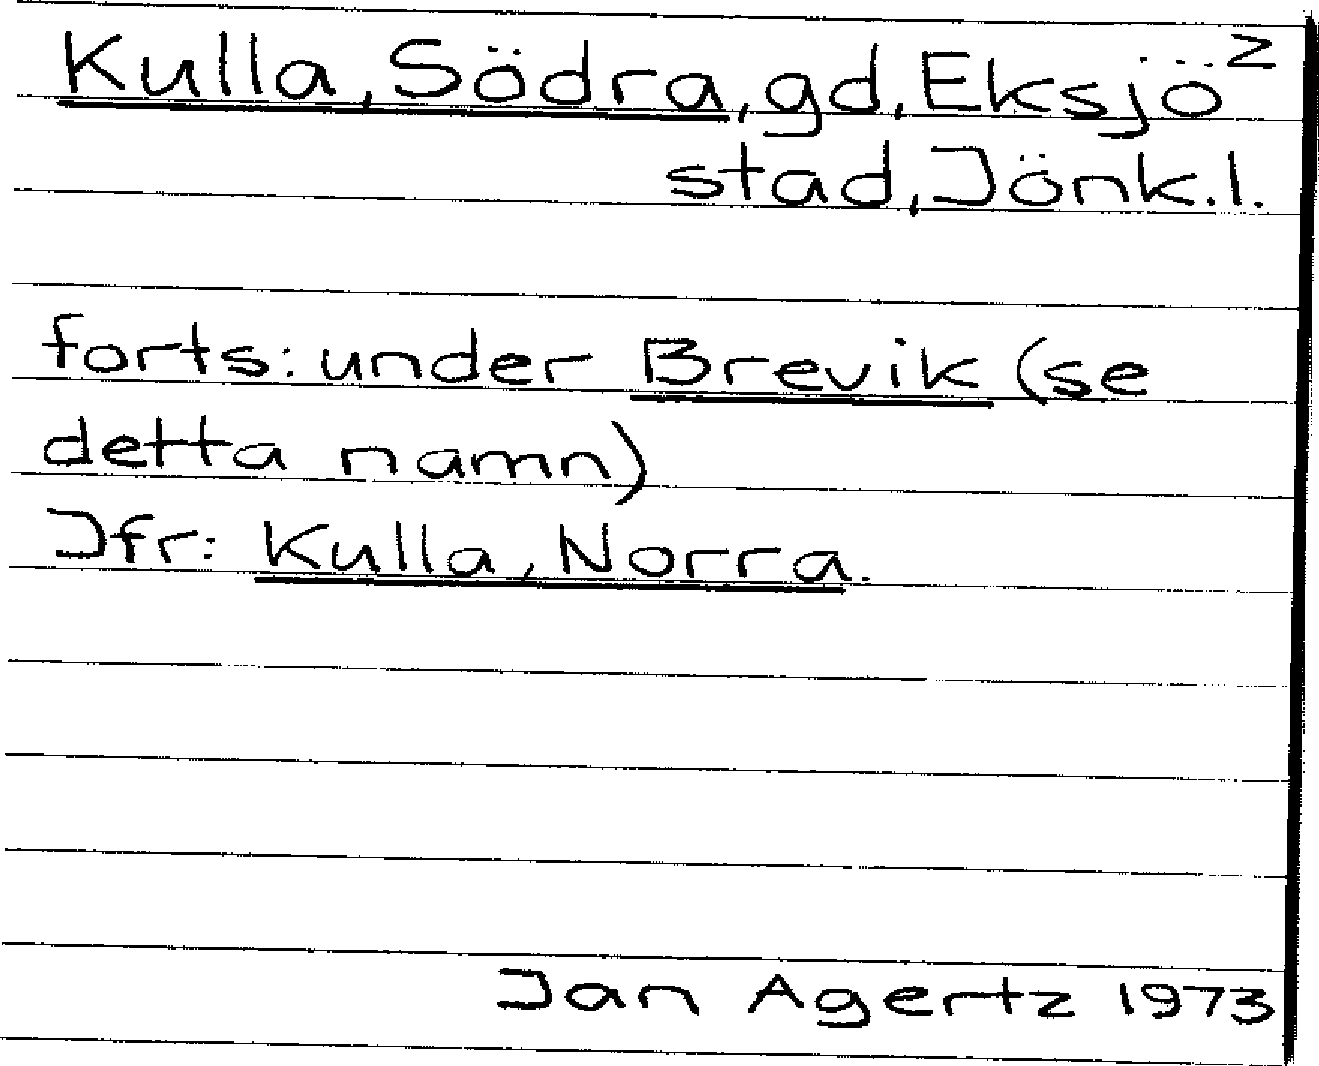 Kulla, Södra, gd, Eksjö 2
stad, Jönk.l.
forts: under Brevik (se
detta namn)
Jfr: Kulla, Norra.
Jan Agertz 1973